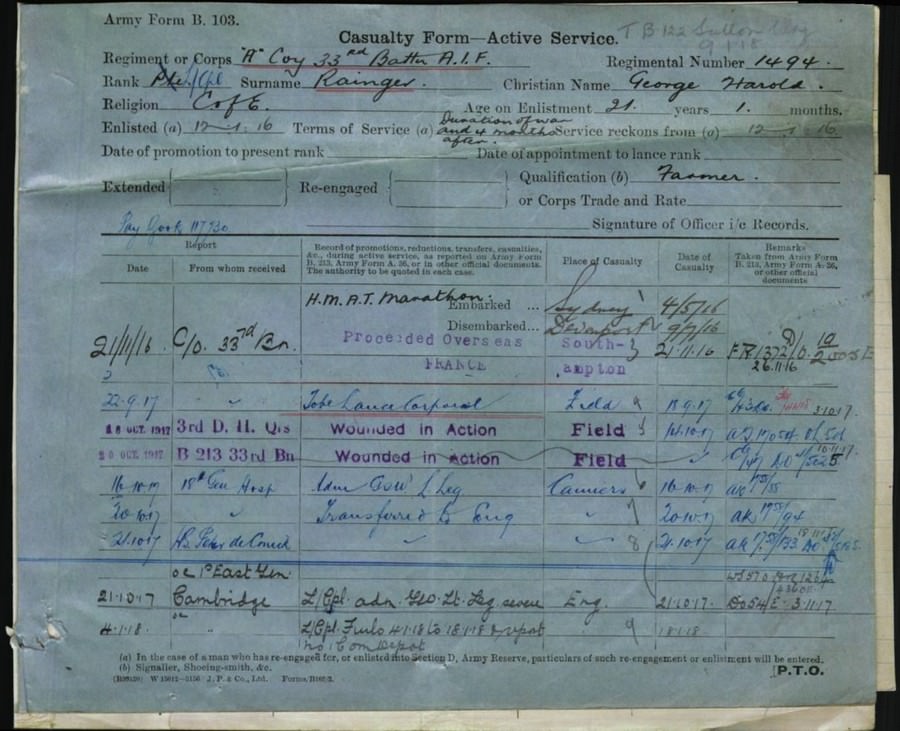 Army Form B. 103.
T B 122 Sutton Veny
9 1 18
Casualty Form—Active Service.
Regiment or Corps "A" Coy 33rd Battn A.I.F. Regimental Number 1494.
Rank Pte/Cpl Surname Rainger. Christian Name George Harold.
Religion C of E. Age on Enlistment 21 years 1. months.
Enlisted (a) 12-1-16 Terms of Service (a) Duration of war and 4 months after. Service reckons from (a) 12-1-16
Date of promotion to present rank Date of appointment to lance rank
Extended Re-engaged Qualification (b) Farmer.
or Corps Trade and Rate
Pay Book Signature of Officer i/c Records.
Report
Date From whom received
Record of promotions, reductions, transfers, casualties, &c., during active service, as reported on Army Form B. 213, Army Form A. 36, or in other official documents. The authority to be quoted in each case.
Place of Casualty
Date of Casualty
Remarks Taken from Army Form B. 213, Army Form A. 36, or other official documents
H.M.A.T. Marathon.
Embarked ... Sydney 4/5/16
Disembarked... Devonport 9/7/16
21/11/16 C/O. 33rd Bn. Proceeded Overseas FRANCE South-ampton 21.11.16 26.11.16
22.9.17 " To be Lance Corporal Field 18.9.17 3.10.17
18 OCT. 1917 3rd D. H. Qrs Wounded in Action Field 14.10.17
20 OCT. 1917 B 213 33rd Bn Wounded in Action Field "
16.10.17 18th Gen Hosp Adm GSW L Leg Camiers 16.10.17
20.10.17 " Transferred to Eng " 20.10.17
21.10.17 " " 21.10.17
oc 1st East Gen
21.10.17 Cambridge L/Cpl. adm. GSW. Lt. Leg severe Eng. 21.10.17. DO54/E 3.11.17.
4.1.18. " L/Cpl. Furlo 4.1.18 to 18.1.18 & report 18.1.18
No 1 Com Depot
(a) In the case of a man who has re-engaged for, or enlisted into Section D, Army Reserve, particulars of such re-engagement or enlistment will be entered.
(b) Signaller, Shoeing-smith, &c.
J. P. & Co., Ltd. P.T.O.